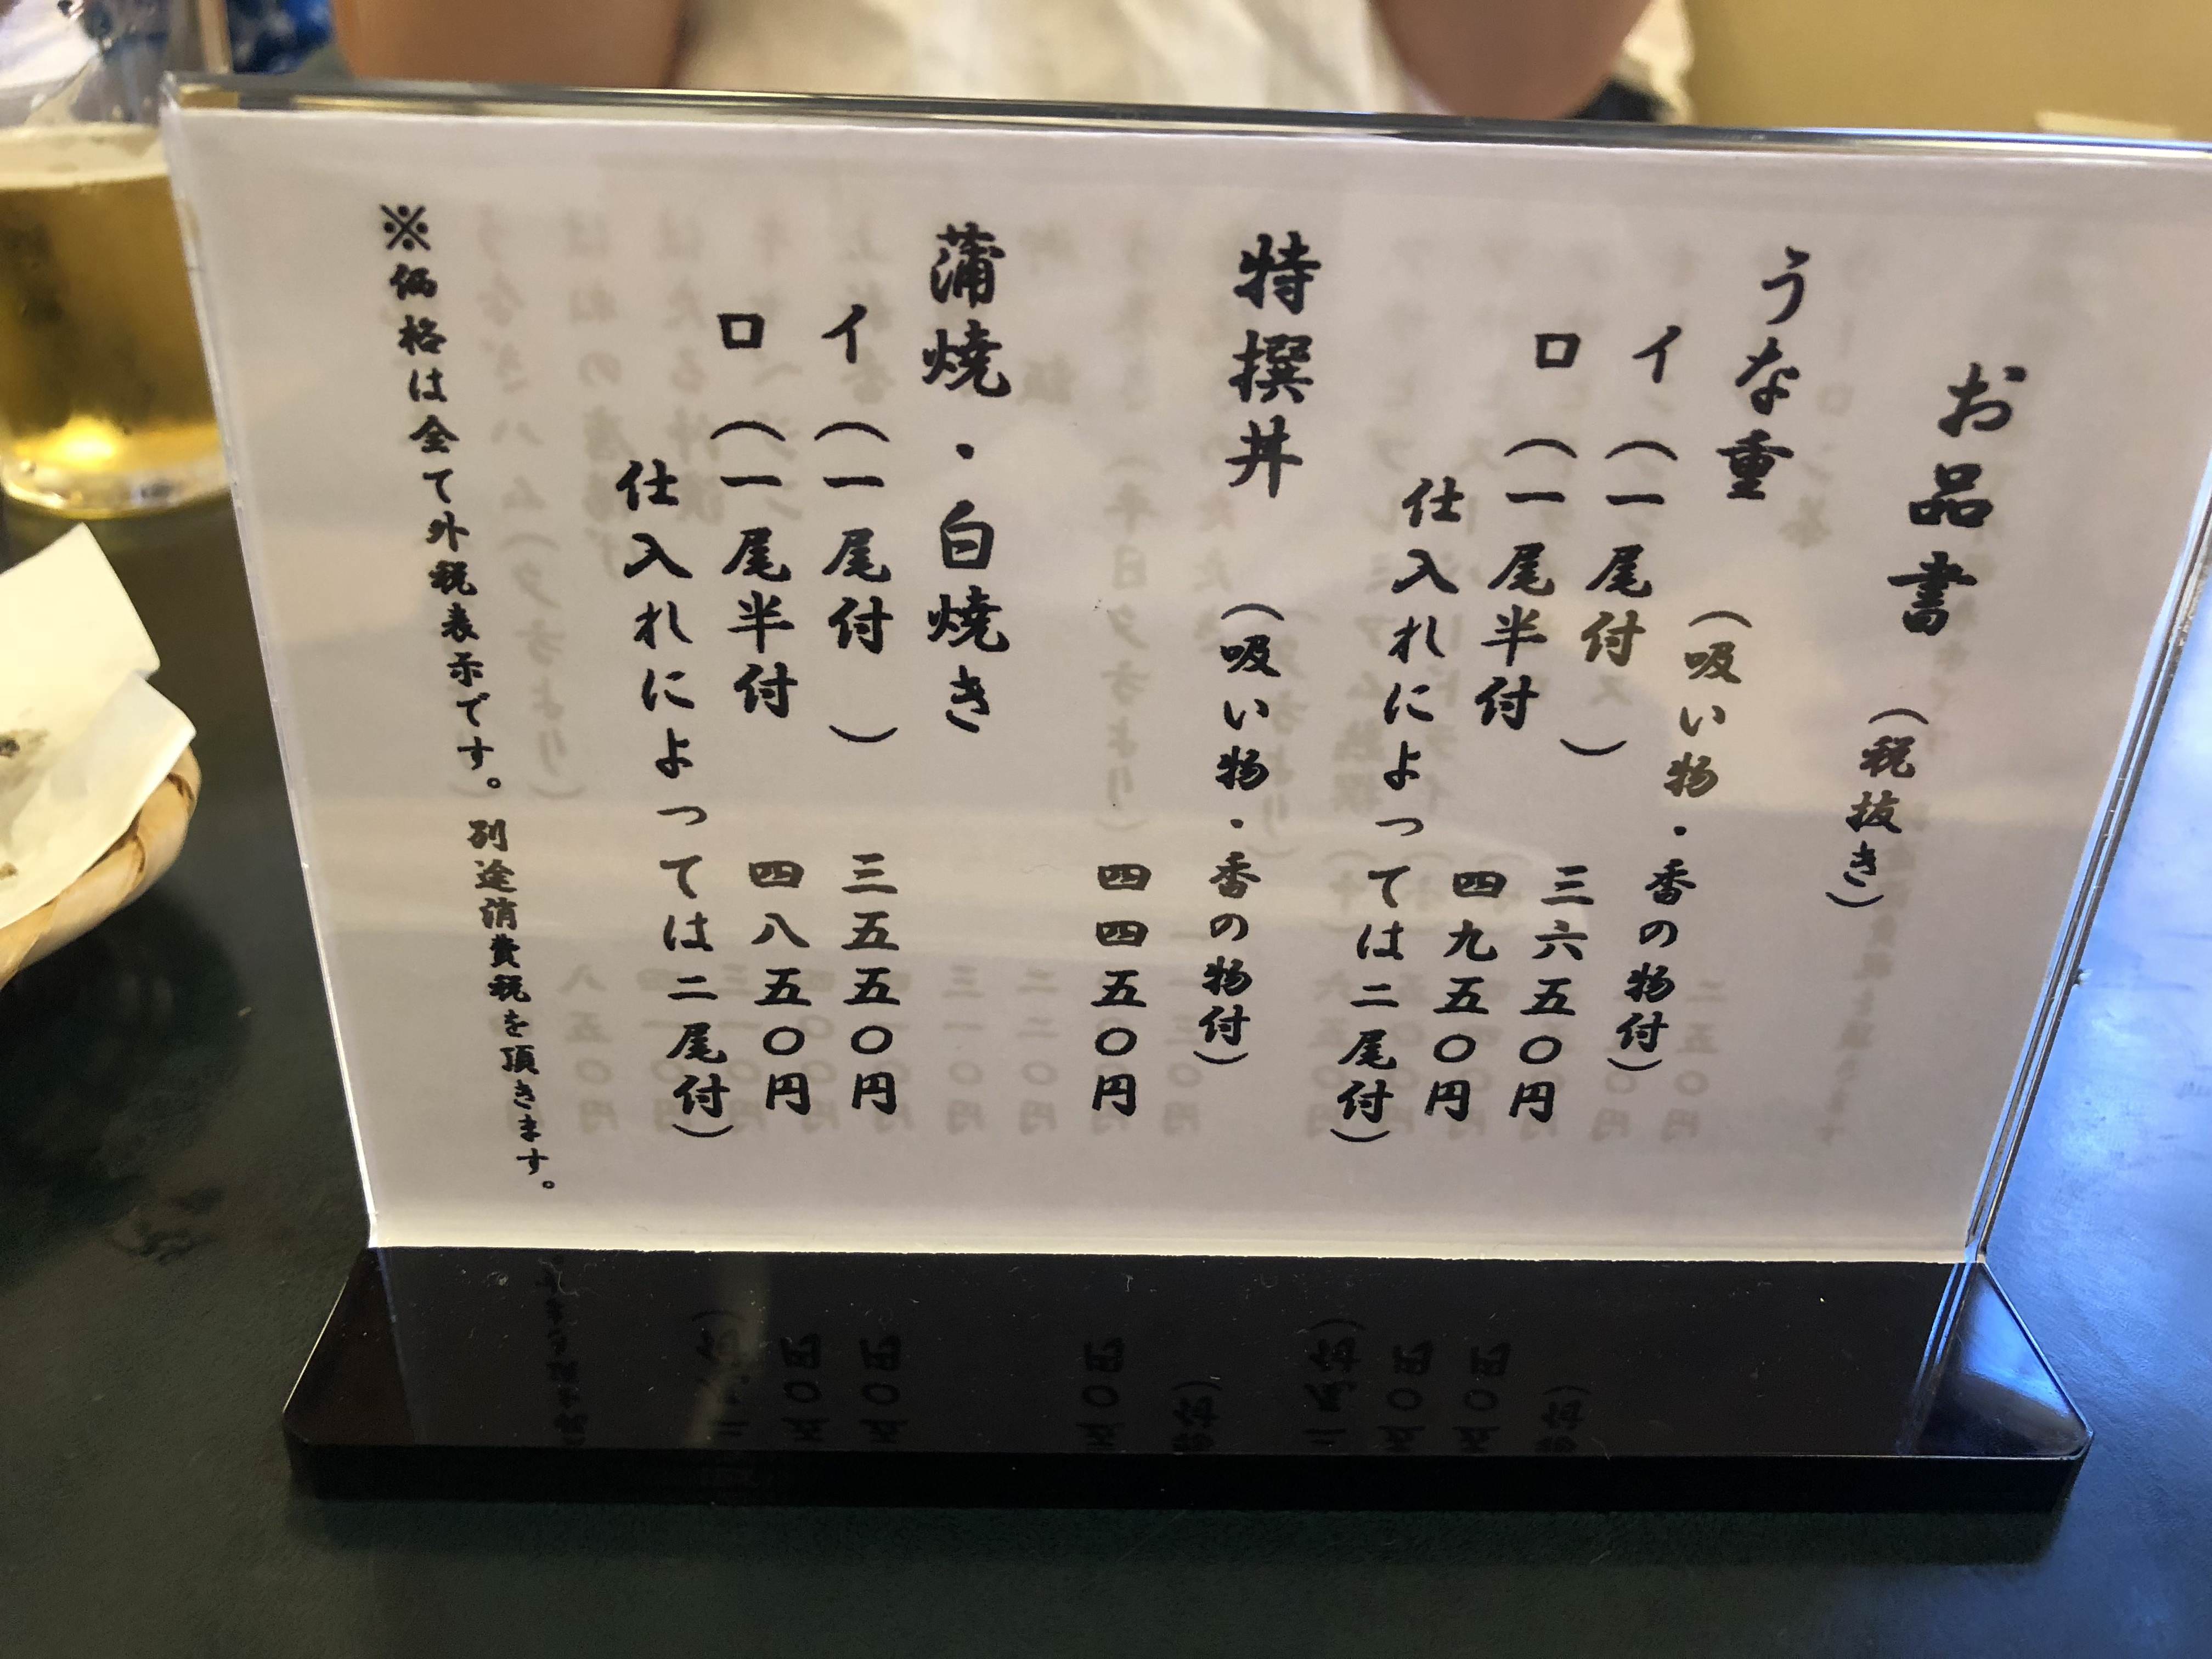 お品書 (税抜き)
うな重 (吸い物・香の物付)
イ (一尾付) 三六五〇円
ロ (一尾半付 四九五〇円
仕入れによっては二尾付)
特撰丼 (吸い物・香の物付)
四四五〇円
蒲焼・白焼き
イ (一尾付) 三五五〇円
ロ (一尾半付 四八五〇円
仕入れによっては二尾付)
※価格は全て外税表示です。別途消費税を頂きます。